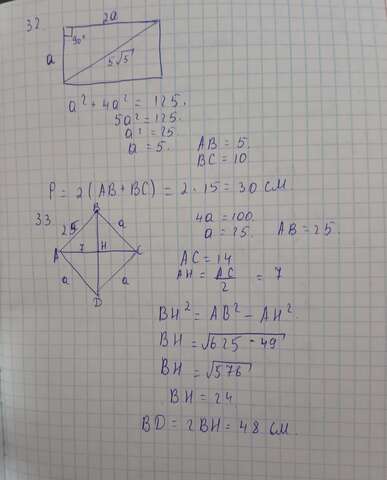 32.
2a
90°
a
5√5
a² + 4a² = 125.
5a² = 125.
a² = 25
a = 5.
AB = 5.
BC = 10.
P = 2(AB+BC) = 2·15 = 30 см.
33.
B
25
a
A
7
H
C
a
a
D
4a = 100.
a = 25.
AB = 25.
AC = 14
AH = AC/2 = 7
BH² = AB² - AH².
BH = √625 - 49
BH = √576
BH = 24
BD = 2BH = 48 см.